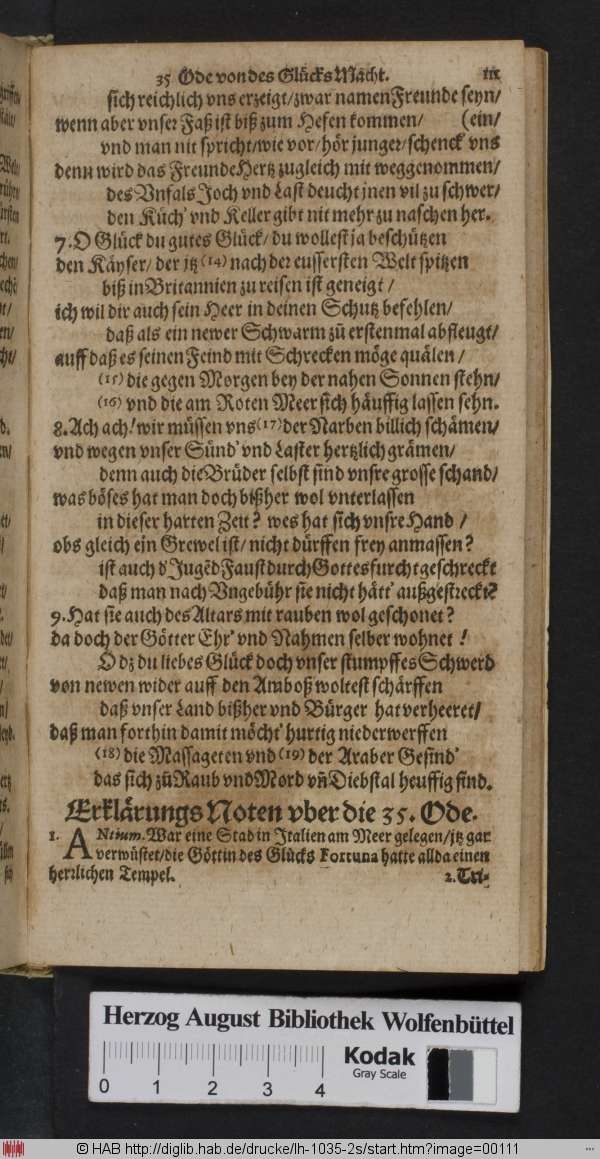 35 Ode von des Glücks Macht. 111
sich reichlich vns erzeigt/zwar namen Freunde seyn/
wenn aber vnser Faß ist biß zum Hefen kommen/ (ein/
vnd man nit spricht/wie vor/hör junger/schenck vns
denn wird das Freunde Hertz zugleich mit weggenommen/
des Vnfals Joch vnd Last deucht jnen vil zu schwer/
den Küch' vnd Keller gibt nit mehr zu naschen her.
7. O Glück du gutes Glück/ du wollest ja beschützen
den Käyser/ der jtz (14) nach der eussersten Welt spitzen
biß in Britannien zu reisen ist geneigt/
ich wil dir auch sein Heer in deinen Schutz befehlen/
daß als ein newer Schwarm zū erstenmal abfleugt/
auff daß es seinen Feind mit Schrecken möge quälen/
(15) die gegen Morgen bey der nahen Sonnen stehn/
(16) vnd die am Roten Meer sich häuffig lassen sehn.
8. Ach ach! wir müssen vns (17) der Narben billich schämen/
vnd wegen vnser Sünd' vnd Laster hertzlich grämen/
denn auch die Brüder selbst sind vnsre grosse schand/
was böses hat man doch bißher wol vnterlassen
in dieser harten Zeit? wes hat sich vnsre Hand/
obs gleich ein Grewel ist/ nicht dürffen frey anmassen?
ist auch d' Jugēd Faust durch Gottesfurcht geschreckt
daß man nach Vngebühr sie nicht hätt' außgestreckt?
9. Hat sie auch des Altars mit rauben wol geschonet?
da doch der Götter Ehr' vnd Nahmen selber wohnet!
O dz du liebes Glück doch vnser stumpffes Schwerd
von newen wider auff den Amboß woltest schärffen
daß vnser Land bißher vnd Bürger hat verheeret/
daß man forthin damit möcht' hurtig niederwerffen
(18) die Massageten vnd (19) der Araber Gesind'
das sich zū Raub vnd Mord vn̄ Diebstal heuffig find.
Erklärungs Noten vber die 35. Ode.
1. ANtium. War eine Stad in Italien am Meer gelegen/jtz gar
verwüstet/die Göttin des Glücks Fortuna hatte allda einen
herrlichen Tempel. 2. Tri-
Herzog August Bibliothek Wolfenbüttel
0 1 2 3 4
Kodak
Gray Scale
© HAB http://diglib.hab.de/drucke/lh-1035-2s/start.htm?image=00111